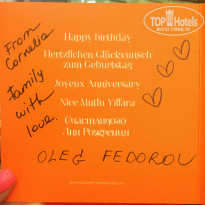 From
Cornelia
family
with
love.
Happy birthday
Herzlichen Glückwunsch
zum Geburtstag
Joyeux Anniversary
Nice Mutlu Yıllara
Счастливого
Дня Рождения
OLEG FEDOROV
TOP Hotels